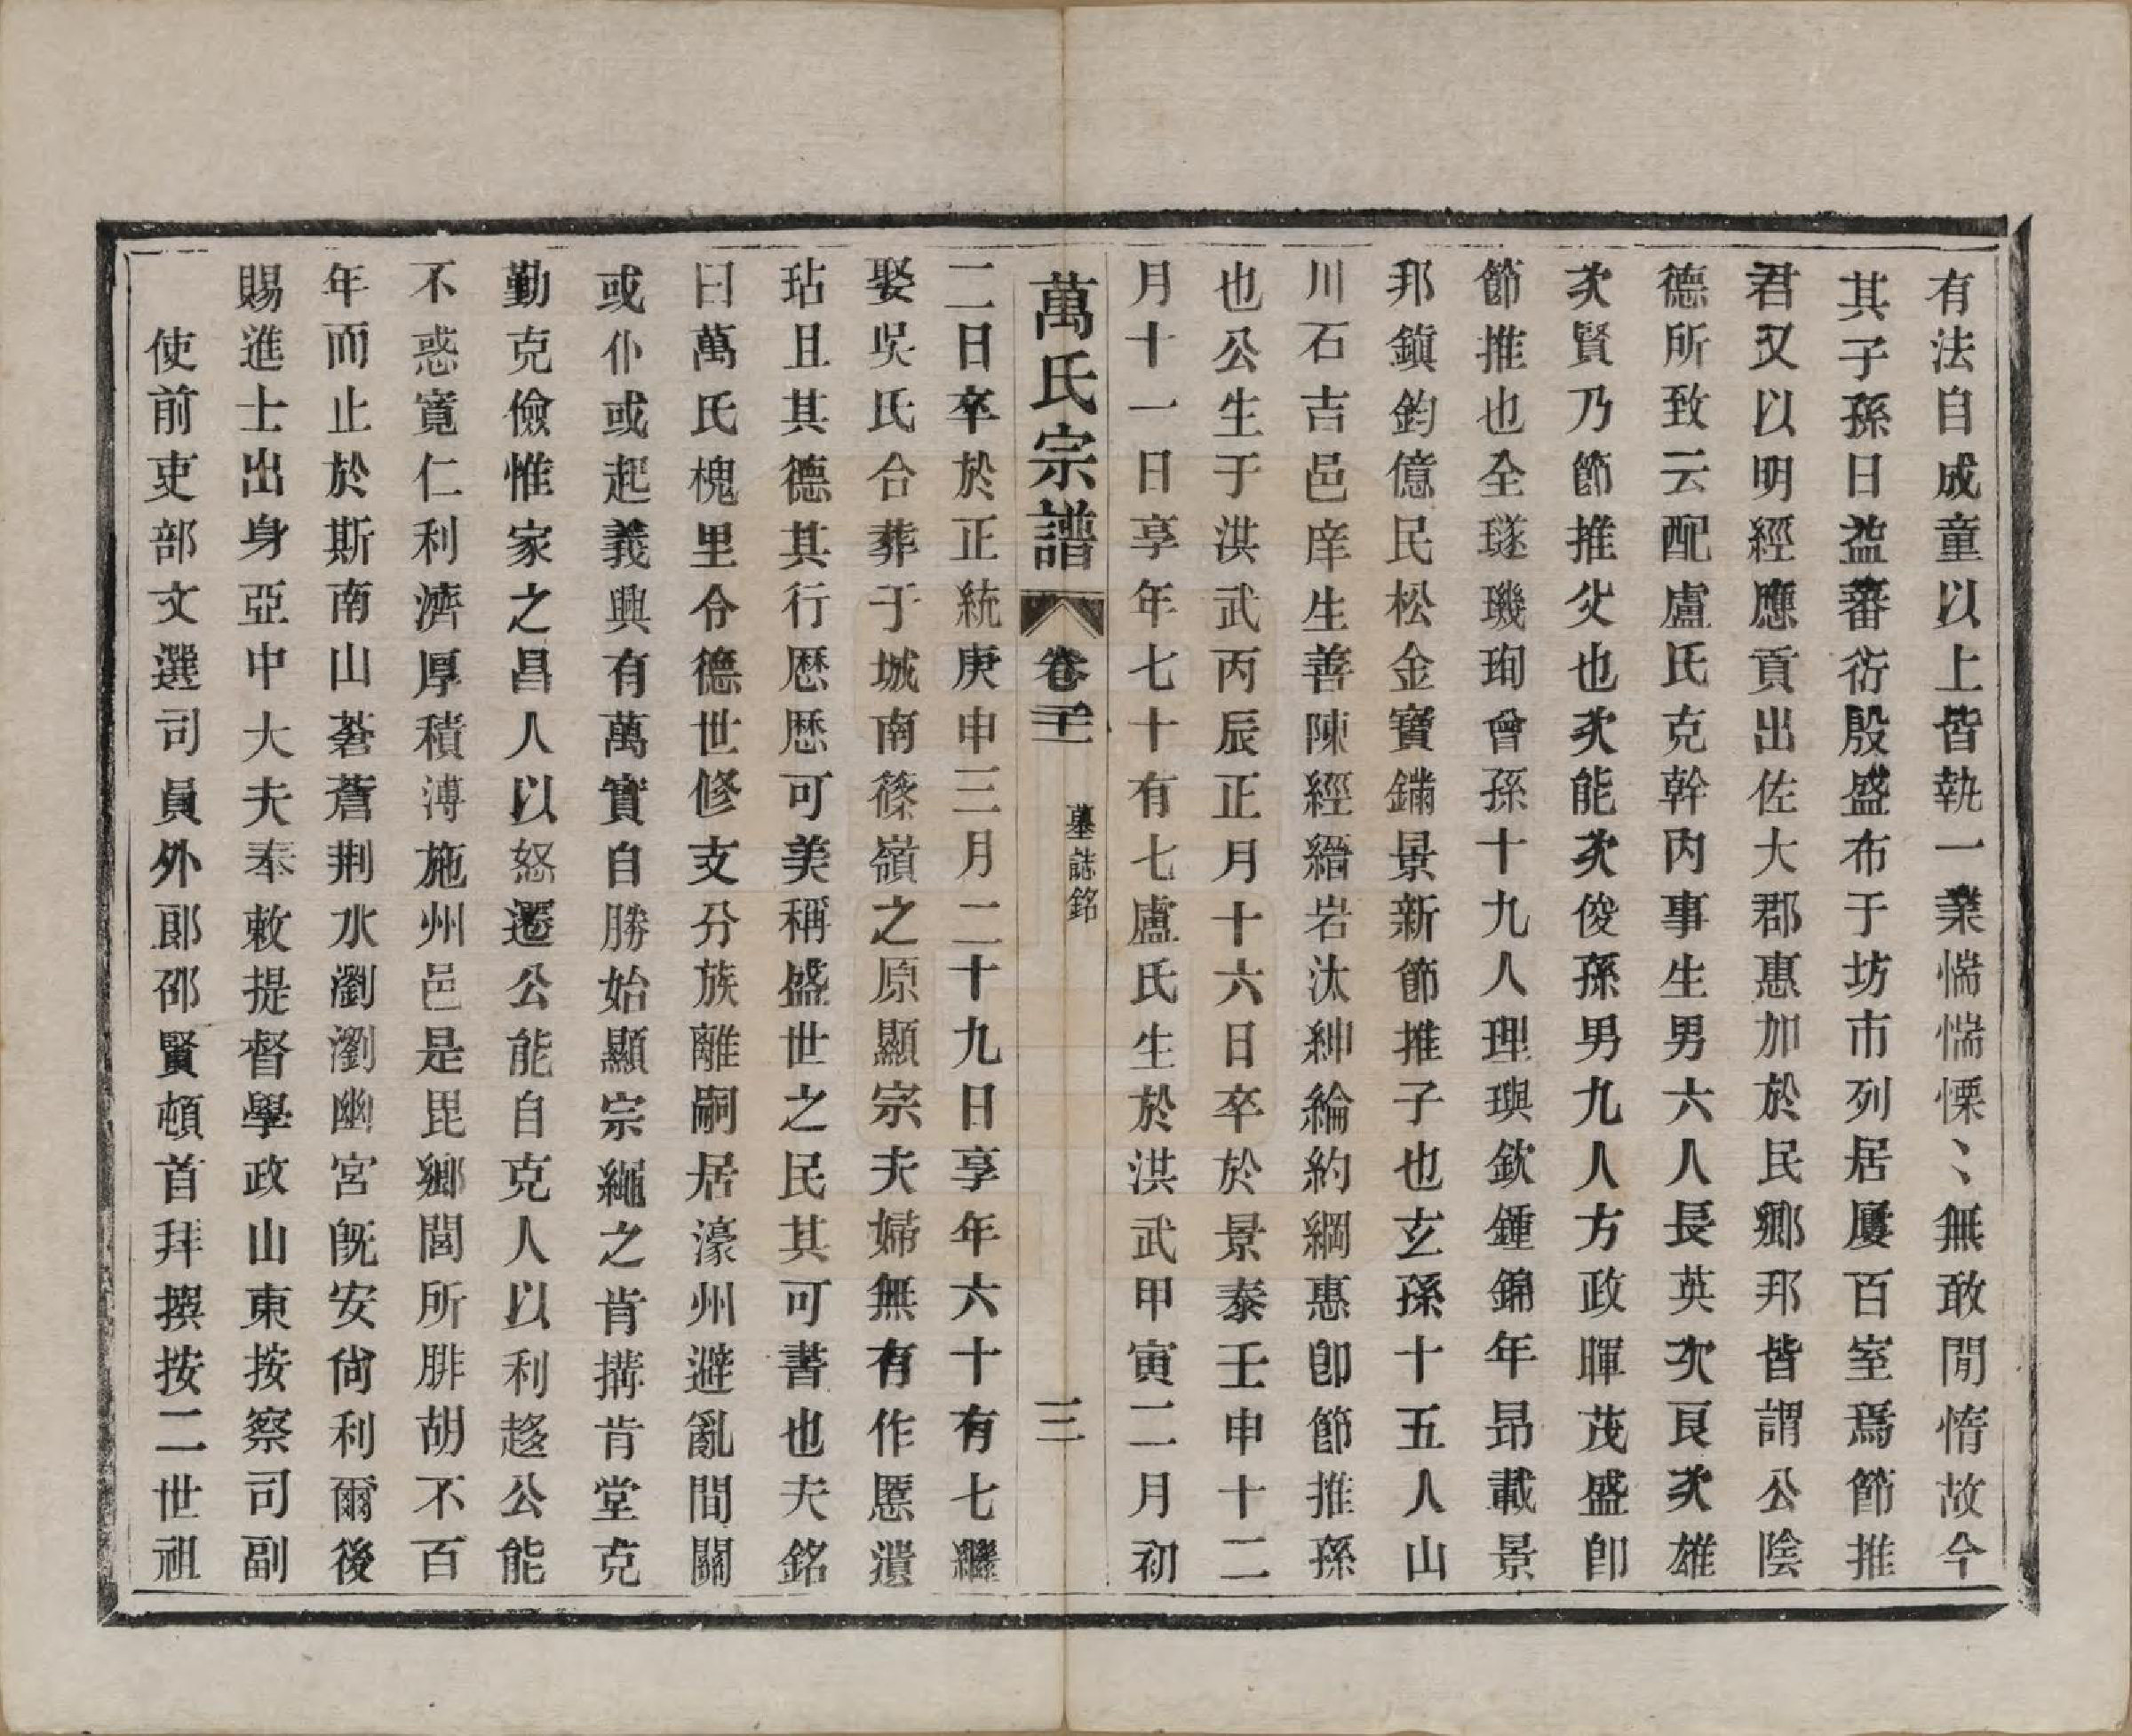 有法自成童以上皆執一業惴惴慄〻無敢閒惰故今
其子孫日益蕃衍殷盛布于坊市列居廛百室焉節推
君又以明經應貢出佐大郡惠加於民鄉邦皆謂公陰
德所致云配盧氏克幹內事生男六人長英次良次雄
次賢乃節推父也次能次俊孫男九人方政暉茂盛卽
節推也全璲璣珣曾孫十九人理璵欽鍾錦年昂載景
邦鎭鈞億民松金寶鏋景新節推子也玄孫十五人山
川石吉邑庠生善陳經縉岩汰紳綸約綱惠卽節推孫
也公生于洪武丙辰正月十六日卒於景泰壬申十二
月十一日享年七十有七盧氏生於洪武甲寅二月初
萬氏宗譜 卷二十二 墓誌銘 三
二日卒於正統庚申三月二十九日享年六十有七繼
娶吳氏合葬于城南篠嶺之原顯宗夫婦無有作慝遺
玷且其德其行歷歷可美稱盛世之民其可書也夫銘
曰萬氏槐里令德世修支分族離嗣居濠州避亂間關
或仆或起義興有萬實自勝始顯宗繩之肯搆肯堂克
勤克儉惟家之昌人以怒遷公能自克人以利趍公能
不惑寬仁利濟厚積溥施州邑是毘鄉閭所腓胡不百
年而止於斯南山蒼蒼荆水瀏瀏幽宮旣安尙利爾後
賜進士出身亞中大夫奉敕提督學政山東按察司副
使前吏部文選司員外郞邵賢頓首拜撰按二世祖